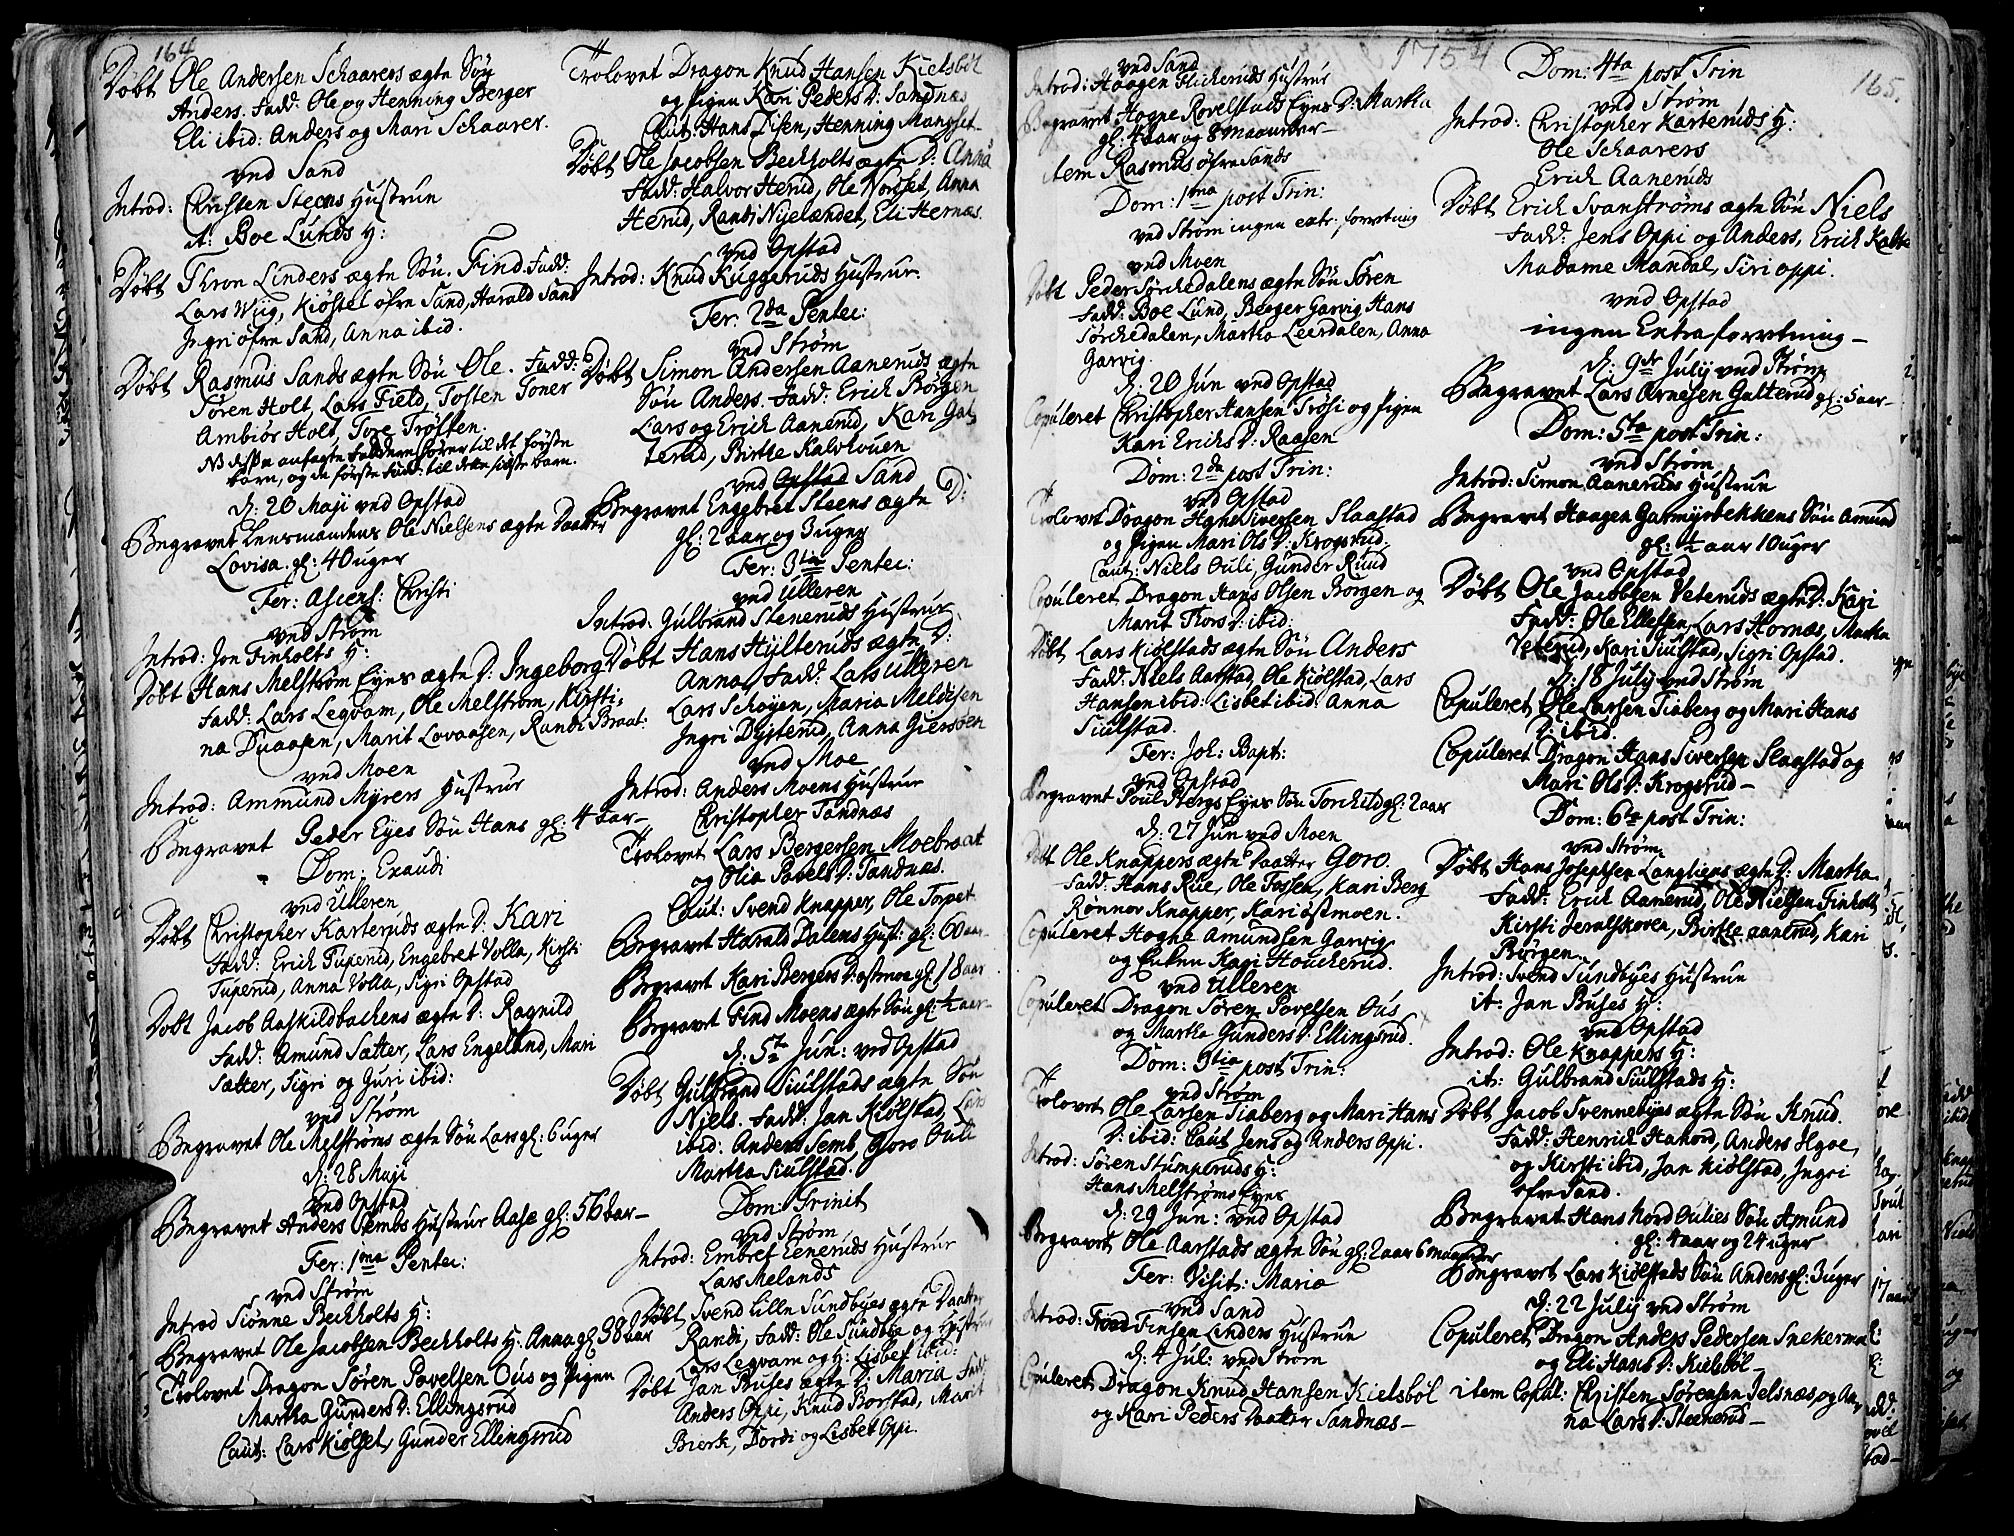 164
Døbt Ole Andersen Schaarers ægte Søn
Anders. Fadd: Ole og Henning Berger
Eli ibid: Anders og Mari Schaarer.
ved Sand
Introd: Christen Steens Hustrue
it: Boe Lunds H:
Døbt Thron Linders ægte Søn. Find. Fadd:
Lars Wiig, Kiøstel øfre Sand, Harald Sand
Ingri øfre Sand, Anna ibid.
Døbt Rasmus Sands ægte Søn Ole. Fadd:
Søren Holt, Lars Field, Tosten Toner
Ambiør Holt, Tore Trøften.
NB disse ansagte Faddere hører til det første
barn, og de første Fadd: til dette sidste barn.
d: 20 Maji ved Opstad
Begravet Lensmandens Ole Nielsens ægte Daatter
Lovisa. gl: 40 uger
Fer: Ascens: Christi
ved Strøm
Introd: Jon Finholts H:
Døbt Hans Melstrøm Eyes ægte D: Ingeborg
Fadd: Lars Legvam, Ole Melstrøm, Kirsti
na Duaasen, Marit Lovaasen, Randi Braat:
ved Moen
Introd: Ammund Myrers Hustrue
Begravet Peder Eyes Søn Hans gl: 4 aar
Dom: Exaudi
ved Ulleren
Døbt Christopher Karteruds ægte D: Kari
Fadd: Erich Tuperud, Engebret Volla, Kirsti
Tuperud, Anna Volla, Sigri Opstad
Døbt Jacob Aaskildbachens ægte D: Ragnild
Fadd: Amund Sætter, Lars Engeland, Mari
Sætter, Sigri og Guri ibid:
ved Strøm
Begravet Ole Melstrøms ægte Søn Lars gl: 6 uger
d: 28 Maji
ved Opstad
Begravet Anders Sembs Hustrue Aase gl: 56 aar
Fer: 1ma Pentec:
ved Strøm
Introd Siønne Bechholts H:
Begravet Ole Jacobsen Bechholts H: Anna gl: 38 aar
Trolovet Dragon Søren Povelsen Ous og Pigen
Martha Gunders D: Ellingsrud
Caut: Lars Kiølset, Gunder Ellingsrud
Trolovet Dragon Knud Hansen Kielsbøl
og Pigen Kari Peders D: Sandnæs
Caut: Hans Disen, Henning Mangset
Døbt Ole Jacobsen Bechholts ægte D: Anna
Fadd: Halvor Herud, Ole Nordset, Anna
Herud, Randi Nyelændet, Eli Hernæs.
ved Opstad
Introd: Knud Kuggeruds Hustrue.
Fer: 2da Pentec:
ved Strøm
Døbt Simon Andersen Aaneruds ægte
Søn Anders. Fadd: Erich Børgen
Lars og Erich Aanerud, Kari Gal-
terud, Birthe Kalvhouen
ved Opstad Sand
Begravet Enggebret Steens ægte D:
gl: 2 aar og 3 uger
Fer: 3tia Pentec:
ved Ulleren
Introd: Gulbrand Steneruds Hustrue
Døbt Hans Hylteruds ægte D:
Anna. Fadd: Lars Ulleren
Lars Schøyen, Maria Meldisen
Ingri Dysterud, Anna Giersøen
ved Moe
Introd: Anders Moens Hustrue
Christopher Sandnæs
Trolovet Lars Bergersen Moebraat
og Olia Povels D: Sandnæs.
Caut: Svend Knapper, Ole Torpet
Begravet Harald Dalens Hust: gl: 60 aar
Begravet Kari Bergers D: ostmoe gl: 18 aar
Begravet Find Moens ægte Søn gl: ½ aar
d: 5te Jun: ved Opstad
Døbt Gulbrand Siulstads ægte Søn
Niels. Fadd: Jan Kiølstad, Lars
ibid: Anders Semb, Goro Ouli
Martha Siulstad.
Dom: Trinit
ved Strøm
Introd: Embret Eeneruds Hustrue
Lars Melands
Døbt Svend Lille Sundbyes ægte Daatter
Randi, Fadd: Ole Sundbye og Hustrue
Lars Legvam og H: Lisbet ibid:
Døbt Jan Buses ægte D: Maria Fadd
Anders Oppi, Knud Borstad, Marit
Bierk, Dordi og Lisbet Oppi.
1754
ved Sand
Introd: Haagen Flicheruds Hustrue
Begravet Hogne Rovelstads Eyes D: Martha
gl: 4 aar og 8 maaneder
item Rasmus øfre Sands
Dom: 1ma post Trin:
ved Strøm ingen extr: forretning
ved Moen
Døbt Peder Sørchedalens ægte Søn Søren
Fadd: Boe Lund, Berger Garvig Hans
Sørchedalen, Martha Leerdalen, Anna
Garvig.
d: 20 Jun ved Opstad
Copuleret Christopher Hansen Trøsi og Pigen
Kari Erichs D: Raasen
Dom: 2da post Trin:
ved Opstad
Trolovet Dragon Hans Siversen Slaastad
og Pigen Mari Ols D: Krogsrud.
Caut: Niels Ouli, Gunder Ruud
Copuleret Dragon Hans Olsen Borgen og
Marit Thors D: ibid:
Døbt Lars Kiølstads ægte Søn Anders
Fadd: Niels Aarstad, Ole Kiølstad, Lars
Hansen ibid: Lisbet ibid: Anna
Siulstad.
Fer: Joh: Bapt:
ved Opstad
Begravet Poul Bergs Eyes Søn Torchild gl: 2 aar
d: 27 Jun ved Moen
Døbt Ole Knappers ægte Daatter Goro.
Fadd: Hans Rue, Ole Fossen, Kari Berg
Rønnor Knapper, Kari østmoen.
Copuleret Hogne Amundsen Garvig
og Enken Kari Houcherud.
ved Ulleren
Copuleret Dragon Søren Povelsen Ous
og Martha Gunders D: Ellingsrud.
Dom: 3tia post Trin:
ved Strøm
Trolovet Ole Larsen Siaberg og Mari Hans
D: ibid: Caut Jens og Anders Oppi.
Introd: Søren Stumperuds H:
Hans Melstrøms Eyes
d: 29 Jun: ved Opstad
Begravet Ole Aarstads ægte Søn gl: 2 aar 6 maaneder
Fer: Visit: Mariæ
ved Sand
Introd: Find Finsen Linders Hustrue
d: 4 Jul: ved Strøm
Copuleret Dragon Knud Hansen Kielsbøl
og Kari Peders Daatter Sandnæs
165.
Dom: 4ta post Trin
ved Strøm
Introd: Christopher Karteruds H:
Ole Schaarers
Erich Aaneruds
Døbt Erich Svanstrøms ægte Søn Niels
Fadd: Jens Oppi og Anders, Erich Kalbe
Madame Mandal, Siri oppi.
ved Opstad
ingen Extra forretning
d: 9de July ved Strøm
Begravet Lars Arnesen Galterud gl: 5 aar
Dom: 5ta post Trin:
ved Strøm
Introd: Simon Aaneruds Hustrue
Begravet Haagen Garmyrbekkens Søn Amund
gl: ½ aar 10 uger
ved Opstad
Døbt Ole Jacobsen Veteruds ægte D: Kari
Fadd: Ole Ellefsen, Lars Hornæs, Martha
Veterud, Kari Siulstad, Sigri Opstad.
d: 18 July ved Strøm
Copuleret Ole Larsen Siaberg og Mari Hans
D: ibid.
Copuleret Dragon Hans Siversen Slaastad og
Mari Ols D: Krogsrud
Dom: 6te post Trin:
ved Strøm
Døbt Hans Josephsen Langliens ægte D: Martha
Fadd: Erich Aanerud, Ole Nielsen Finholt
Kirsti Jeralskoren, Birthe aanerud, Kari
Børgen.
Introd: Svend Sundbyes Hustrue
it: Jan Buses H:
ved Opstad
Introd: Ole Knappers H:
it: Gulbrand Siulstads H:
Døbt Jacob Svennebyes ægte Søn Knud.
Fadd: Henrich Habord, Anders Hgoe,
og Kirsti ibid, Jan Kiølstad, Ingri
øfre Sand.
Begravet Hans Nord Oulies Søn Amund
gl: 4 aar og 24 uger
Begravet Lars Kiølstads Søn Anders gl: 3 uger
d: 22 July ved Strøm
Copuleret Dragon Anders Pedersen Snekermoe
og Eli Hans D: Kielsbøl
item Copul: Christen Sørensen Jelsnæs og An-
na Lars D: Steenerud